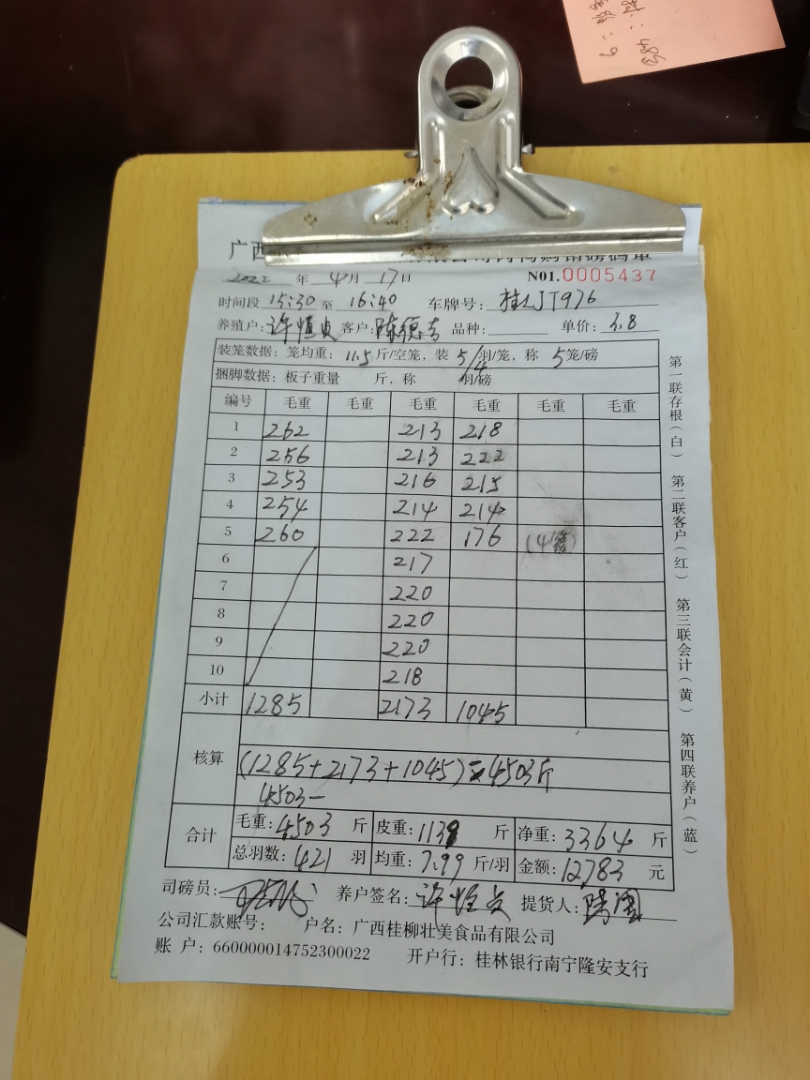 广西
2022 年 4 月 17 日 N01.0005437
时间段 15:30 至 16:40 车牌号: 桂LJT976
养殖户: 许恒 客户: 陈德 品种: 单价: 3.8
装笼数据: 笼均重: 11.5 斤/空笼, 装 5/4 羽/笼, 称 5 笼/磅
捆脚数据: 板子重量 斤, 称 羽/磅
编号 毛重 毛重 毛重 毛重 毛重 毛重
1 262 213 218
2 256 213 222
3 253 216 215
4 254 214 214
5 260 222 176 (4笼)
6 217
7 220
8 220
9 220
10 218
小计 1285 2173 1045
核算 (1285+2173+1045)=4503斤
4503-
合计 毛重: 4503 斤 皮重: 1139 斤 净重: 3364 斤
总羽数: 421 羽 均重: 7.99 斤/羽 金额: 12783 元
司磅员: 养户签名: 许恒 提货人:
公司汇款账号: 户名: 广西桂柳壮美食品有限公司
账 户: 660000014752300022 开户行: 桂林银行南宁隆安支行
第一联存根(白) 第二联客户(红) 第三联会计(黄) 第四联养户(蓝)